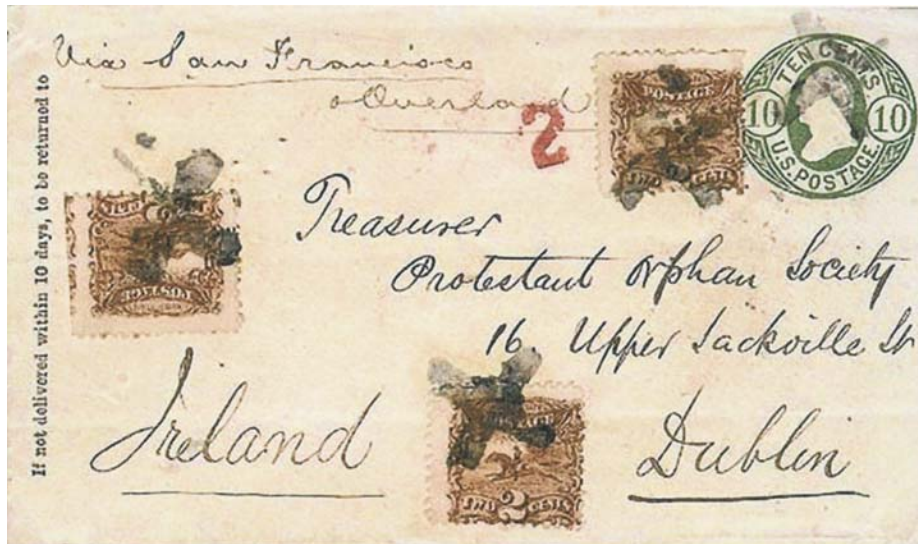 If not delivered within 10 days, to be returned to
Via San Francisco
Overland
2
POSTAGE
TWO CENTS
TEN CENTS
10 10
U.S. POSTAGE.
POSTAGE
Treasurer
Protestant Orphan Society
16. Upper Sackville St
Ireland
Dublin
TWO 2 CENTS